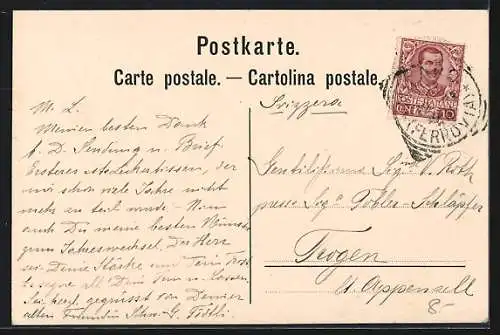 Postkarte.
Carte postale. — Cartolina postale.
POSTE ITALIANE
CEN 10
FERROVIA
Svizzera
M. L.
Meinen besten Dank
f. D. Sendung u. Brief.
der
mir schon viele Jahre nicht
mehr zu teil wurde – Nim
auch Du meine besten Wünsche
zum Jahreswechsel. Der Herr
sei Deine Stärke und Dein
segne all Dein Tun u. Lassen.
Sei herzl. gegrüsst von Deiner
alten Freundin
Gentilissima Sig.a V. Roth
presso Sig.a Tobler-Schläpfer
Trogen
Ct. Appenzell
8-